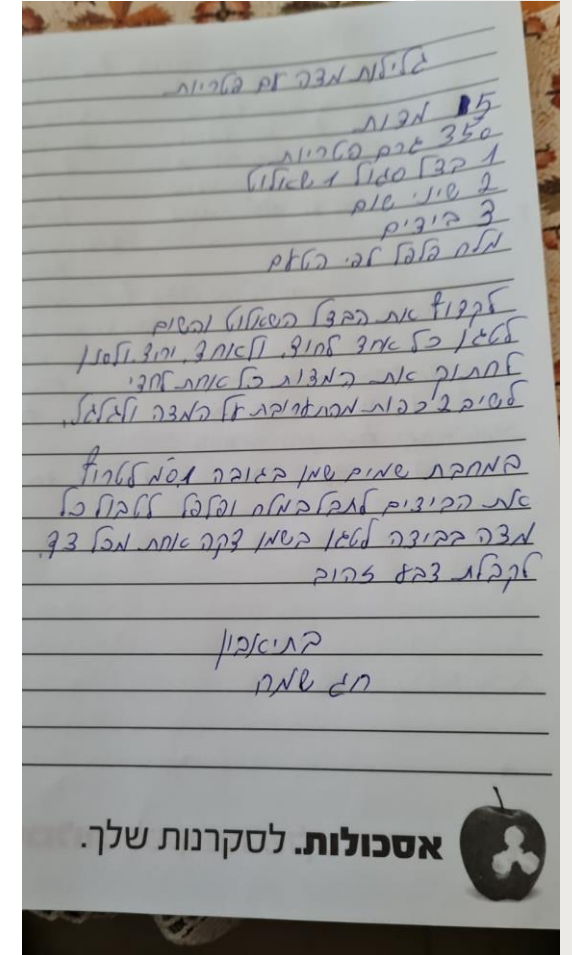 גלילות מצה עם פטריות
5 מצות
350 גרם פטריות
1 בצל סגול 1 שאלוט
2 שיני שום
3 ביצים
מלח פלפל לפי הטעם
לקצוץ את הבצל השאלוט והשום
לטגן כל אחד לחוד, ולאחד יחד ולסנן
לחתוך את המצות כל אחת לחצי
לשים 2 כפות מהתערובת על המצה ולגלגל.
במחבת שמים שמן בגובה 1 ס"מ לטרוף
את הביצים לתבל במלח ופלפל לטבול כל
מצה בביצה לטגן בשמן דקה אחת מכל צד.
לקבלת צבע זהוב
בתיאבון
חג שמח
אסכולות. לסקרנות שלך.